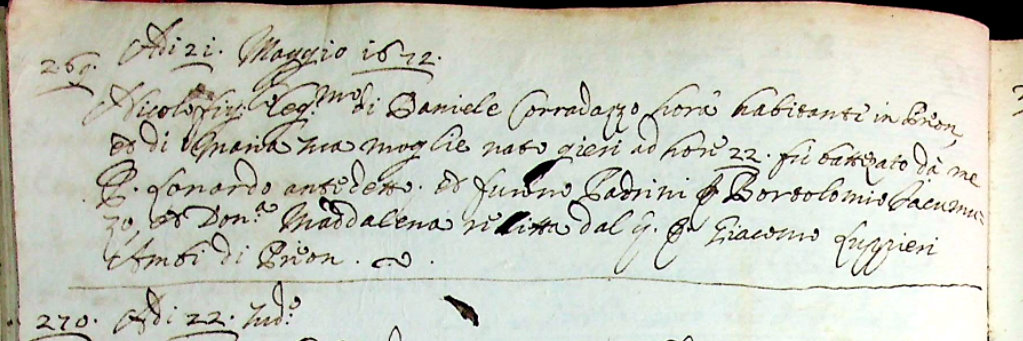 269. Adi 21. Maggio 1672.
Nicolo fig: leg.mo di Daniele Corradazzo hora habitante in Prion
et di Maria sua moglie nato gieri ad hore 22. fù battezato dà me
P. Lonardo antedetto. et furono Padrini Bortolomio Iacumu=
zo, et Don.a Maddalena relitta dal q. Giacomo Luppieri
Ambi di Prion.
270. Adi 22. Sud.o